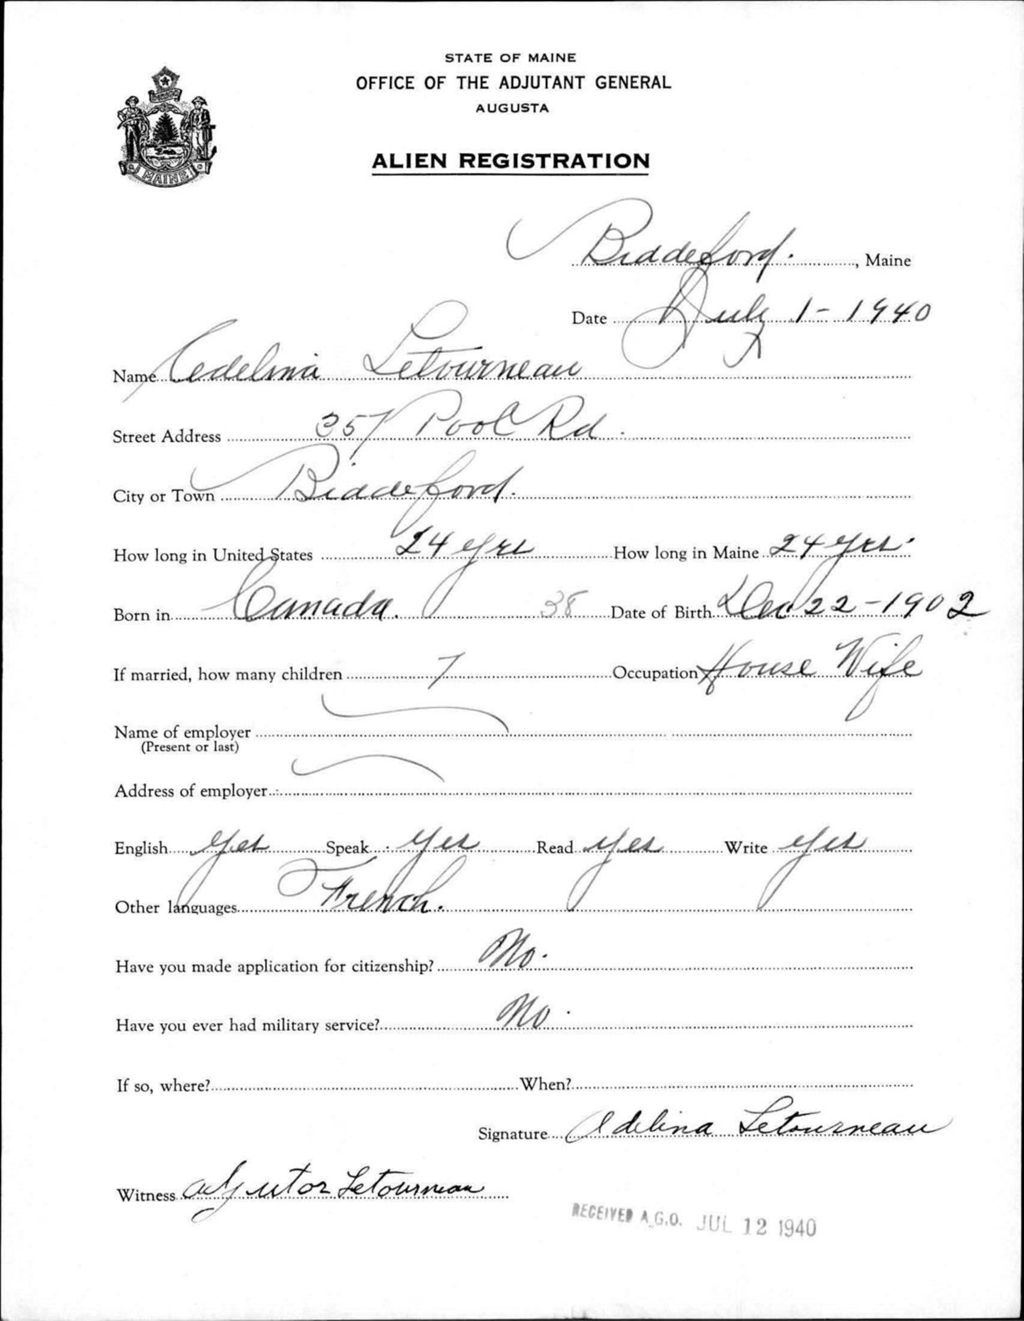 STATE OF MAINE
OFFICE OF THE ADJUTANT GENERAL
AUGUSTA
ALIEN REGISTRATION
MAINE
Biddeford. , Maine
Date July 1 - 1940
Name Adelina Letourneau
Street Address 357 Pool Rd.
City or Town Biddeford.
How long in United States 24 yrs How long in Maine 24 yrs.
Born in Canada. 38 Date of Birth Dec 22 - 1902
If married, how many children 7 Occupation House Wife
Name of employer
(Present or last)
Address of employer
English Yes Speak Yes Read Yes Write Yes
Other languages French.
Have you made application for citizenship? No.
Have you ever had military service? No.
If so, where? When?
Signature Adelina Letourneau
Witness Adjutor Letourneau
RECEIVED A.G.O. JUL 12 1940